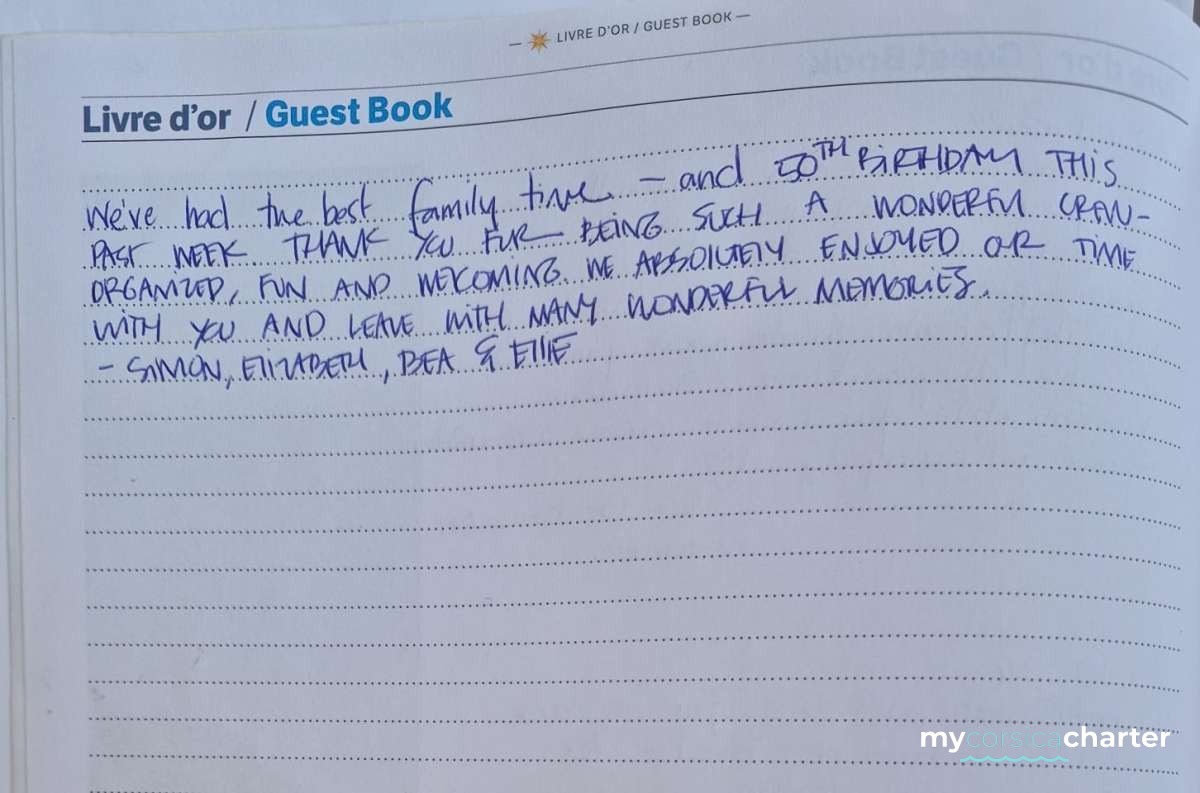 — LIVRE D'OR / GUEST BOOK —
Livre d'or / Guest Book
We've had the best family time – and 50TH BIRTHDAY THIS
PAST WEEK. THANK YOU FUR BEING SUCH A WONDERFUL CRAW-
ORGANIZED, FUN AND WELCOMING. WE ABSOLUTELY ENJOYED OUR TIME
WITH YOU AND LEAVE WITH MANY WONDERFUL MEMORIES.
- SIMON, ELIZABETH, BEA & ELLIE
mycorsicacharter